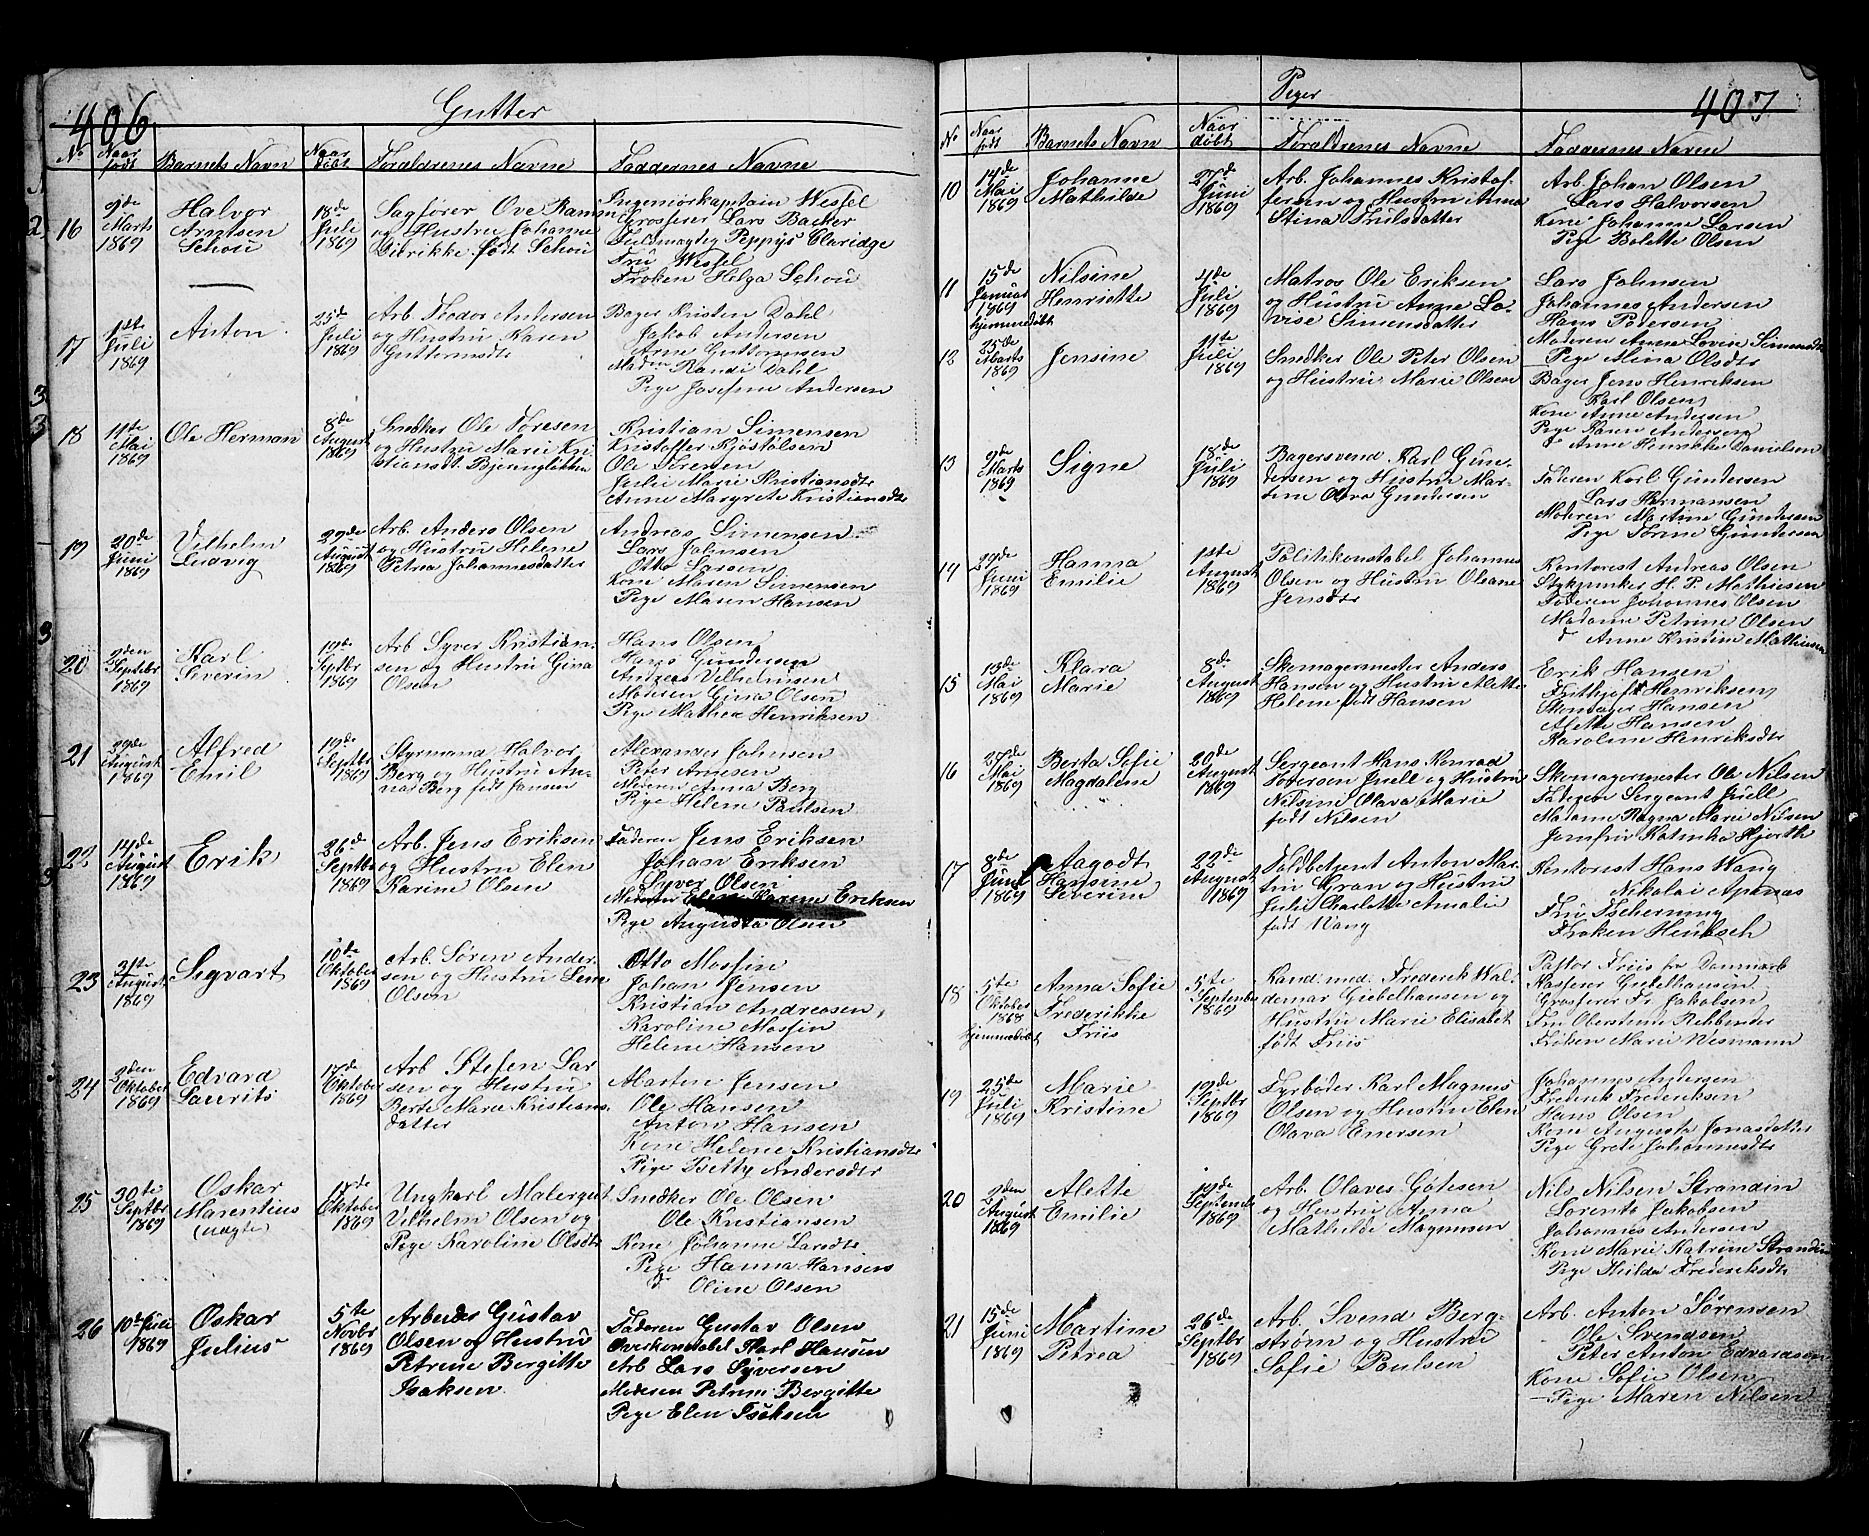 406
Gutter
No
Naar født
Barnets Navn
Naar døbt
Forældrenes Navne
Faddernes Navne
16
9de Marts 1869
Halvor
Arntsen
Schou
18de Juli 1869
Sagfører Ove Ramm
og Hustru Johanne
Didrikke født Schou
Ingeniörkaptain Wessel
Grosserer Lars Backer
Fuldmægtig Peppys Claridge
Fru Wessel
Frøken Helga Schou
17
1ste Juli 1869
Anton
25de Juli 1869
Arb. Teodor Andersen
og Hustru Karen
Guttormsdtr
Bager Kristen Dahl
Jakob Andersen
Arne Guttormsen
Madm Randi Dahl
Pige Josefine Andersen
18
11te Mai 1869
Ole Herman
8de August 1869
Snedker Ole Toresen
og Hustru Marie Kri-
stiansdt.
Kristian Simensen
Kristoffer Kjøstolsen
Ole Toresen
Julie Marie Kristiansdtr
Anne Margrete Kristiansdtr
19
20de Juni 1869
Vilhelm
Ludvig
29de August 1869
Arb. Anders Olsen
og Hustru Helene
Petrea Johannesdatter
Andreas Simensen
Lars Johnsen
Otto Larsen
Kone Maren Simensen
Pige Maren Hansen
20
2den Septebr 1869
Karl
Severin
19de Septbr 1869
Arb Syver Kristian-
sen og Hustru Gina
Olsen
Hans Olsen
Hans Gundersen
Andreas Vilhelmsen
Moderen Gina Olsen
Pige Mathea Henriksen
21
29de August 1869
Alfred
Emil
19de Septbr 1869
Styrmand Halvor
Berg og Hustru An-
na Berg født Jansen
Alexander Johnsen
Peter Arnesen
Moderen Anna Berg
Pige Helene Paulsen
22
14de August 1869
Erik
26de Septbr 1869
Arb. Jens Eriksen
og Hustru Elen
Karine Olsen
Faderen Jens Eriksen
Johan Eriksen
Syver Olsen
Moderen Elen Karine Eriksen
Pige Augusta Olsen
23
21te August 1869
Sigvart
10de Oktober 1869
Arb. Søren Ander-
sen og Hustru Lene
Olsen
Otto Mossin
Johan Jensen
Kristian Andreasen,
Karoline Mossin
Helene Hansen
24
2den Oktober 1869
Edvard
Laurits
17de Oktober 1869
Arb Stefen Lar-
sen og Hustru
Berte Marie Kristians-
datter
Morten Jensen
Ole Hansen
Anton Hansen
Kone Helene Kristiansdtr
Pige Betty Andersdtr
25
30te Septbr 1869
Oskar
Marentius
(uægte)
17de Oktober 1869
Ungkarl Malergut
Vilhelm Olsen og
Pige Karoline Olsdtr
Snedker Ole Olsen
Ole Kristiansen
Kone Johanne Larsdtr
Pige Hanna Hansen
do Oline Olsen
26
10de Juli 1869
Oskar
Julius
5te Novbr 1869
Arbeider Gustav
Olsen og Hustru
Petrine Bergitte
Isaksen
Faderen Gustav Olsen
Overkonstabel Karl Hansen
Arb Lars Syversen
Moderen Petrine Bergitte
Pige Elen Isaksen
Piger
407
No
Naar født
Barnets Navn
Naar døbt
Forældrenes Navne
Faddernes Navne
10
14de Mai 1869
Johanne
Mathilde
27de Juni 1869
Arb. Johannes Kristof-
fersen og Hustru Anna
Stina
Arb. Johan Olsen
Lars Halvorsen
Kone Johanne Larsen
Pige Bolette Olsen
11
15de Januar 1869 hjemmedøbt
Nilsine
Henriette
4de Juli 1869
Matros Ole Eriksen
og Hustru Anne Lo-
vise Simensdatter
Lars Johnsen
Johannes Andersen
Hans Petersen
Moderen Anne Lovise Simensdtr
Pige Mina Olsdtr
12
25de Marts 1869
Jensine
11te Juli 1869
Snedker Ole Peter Olsen
og Hustru Marie Olsen
Bager Jens Henriksen
Karl Olsen
Kone Anne Andersen
Pige Karen Andersen
do Anne Henrikke Danielsen
13
9de Marts 1869
Signe
18de Juli 1869
Bagersvend Karl Gun-
dersen og Hustru Mar-
tine Olava Gundersen
Faderen Karl Gundersen
Lars Hermansen
Moderen Martine Gundersen
Pige Torine Gundersen
14
29de Juni 1869
Hanna
Emilie
1ste August 1869
Politikonstabel Johannes
Olsen og Hustru Olsane
Jensdtr
Kontorist Andreas Olsen
Stykjunker H. P. Mathiesen
Faderen Johannes Olsen
Madame Petrine Olsen
do Anne Kristine Mathiesen
15
13de Mai 1869
Klara
Marie
8de August 1869
Skomagermester Anders
Hansen og Hustru Alette
Helene født Hansen
Erik Hansen
Frithjof Henriksen,
Skomager Hansen
Alette Hansen
Karoline Henriksdtr
16
27de Mai 1869
Berta Sofie
Magdalene
20de August 1869
Sergeant Hans Konrad
Juell og Hustru
Nilsine Olava Marie
født Nilsen
Skomagermester Ole Nilsen
Faderen Sergeant Juell
Madame Ragna Marie Nilsen
Jomfru Katinka Hjorth
17
8de Juni 1869
Aagodt
Hansine
Severine
22de August 1869
Toldbetjent Anton Mar-
tin Gran og Hustru
Julie Charlotte Amalie
født Wang
Kontorist Hans Wang
Nikolai Apenæs
Fru Tscherning
Frøken Heutsch
18
5te Oktober 1868 hjemmedøbt
Anna Sofie
Frederikke
Friis
5te September 1869
Kand. med. Frederik Wal-
demar Giebelhausen og
Hustru Marie Elisabet
født Friis
Pastor Friis fra Danmark
Kasserer Giebelhausen
Grosserer Fr. Jakobsen
Fru Oberstinde Rehbinder
Frøken Marie Wesmann
19
25de Juli 1869
Marie
Kristine
19de Septbr 1869
Fyrbøder Karl Magnus
Olsen og Hustru Elen
Olava Enersen
Johannes Andersen
Frederik Frederiksen
Hans Olsen
Kone Augusta Jonasdatter
Pige Grete Johannesdtr
20
2den August 1869
Alette
Emilie
19de September 1869
Arb. Olaves Gøtesen
og Hustru Anna
Mathilde Magnusen
Nils Nilsen Stranden
Lorents Jakobsen
Johannes Andersen
Kone Marie Katrine Stranden
Pige Hulda Frederiksdtr
21
15de Juni 1869
Martine
Petrea
26de Septbr 1869
Arb. Svend Berg-
strøm og Hustru
Sofie Paulsen
Arb. Anton Sørensen
Ole Svendsen
Peter Anton Edvardsen
Kone Sofie Olsen
Pige Maren Nilsen